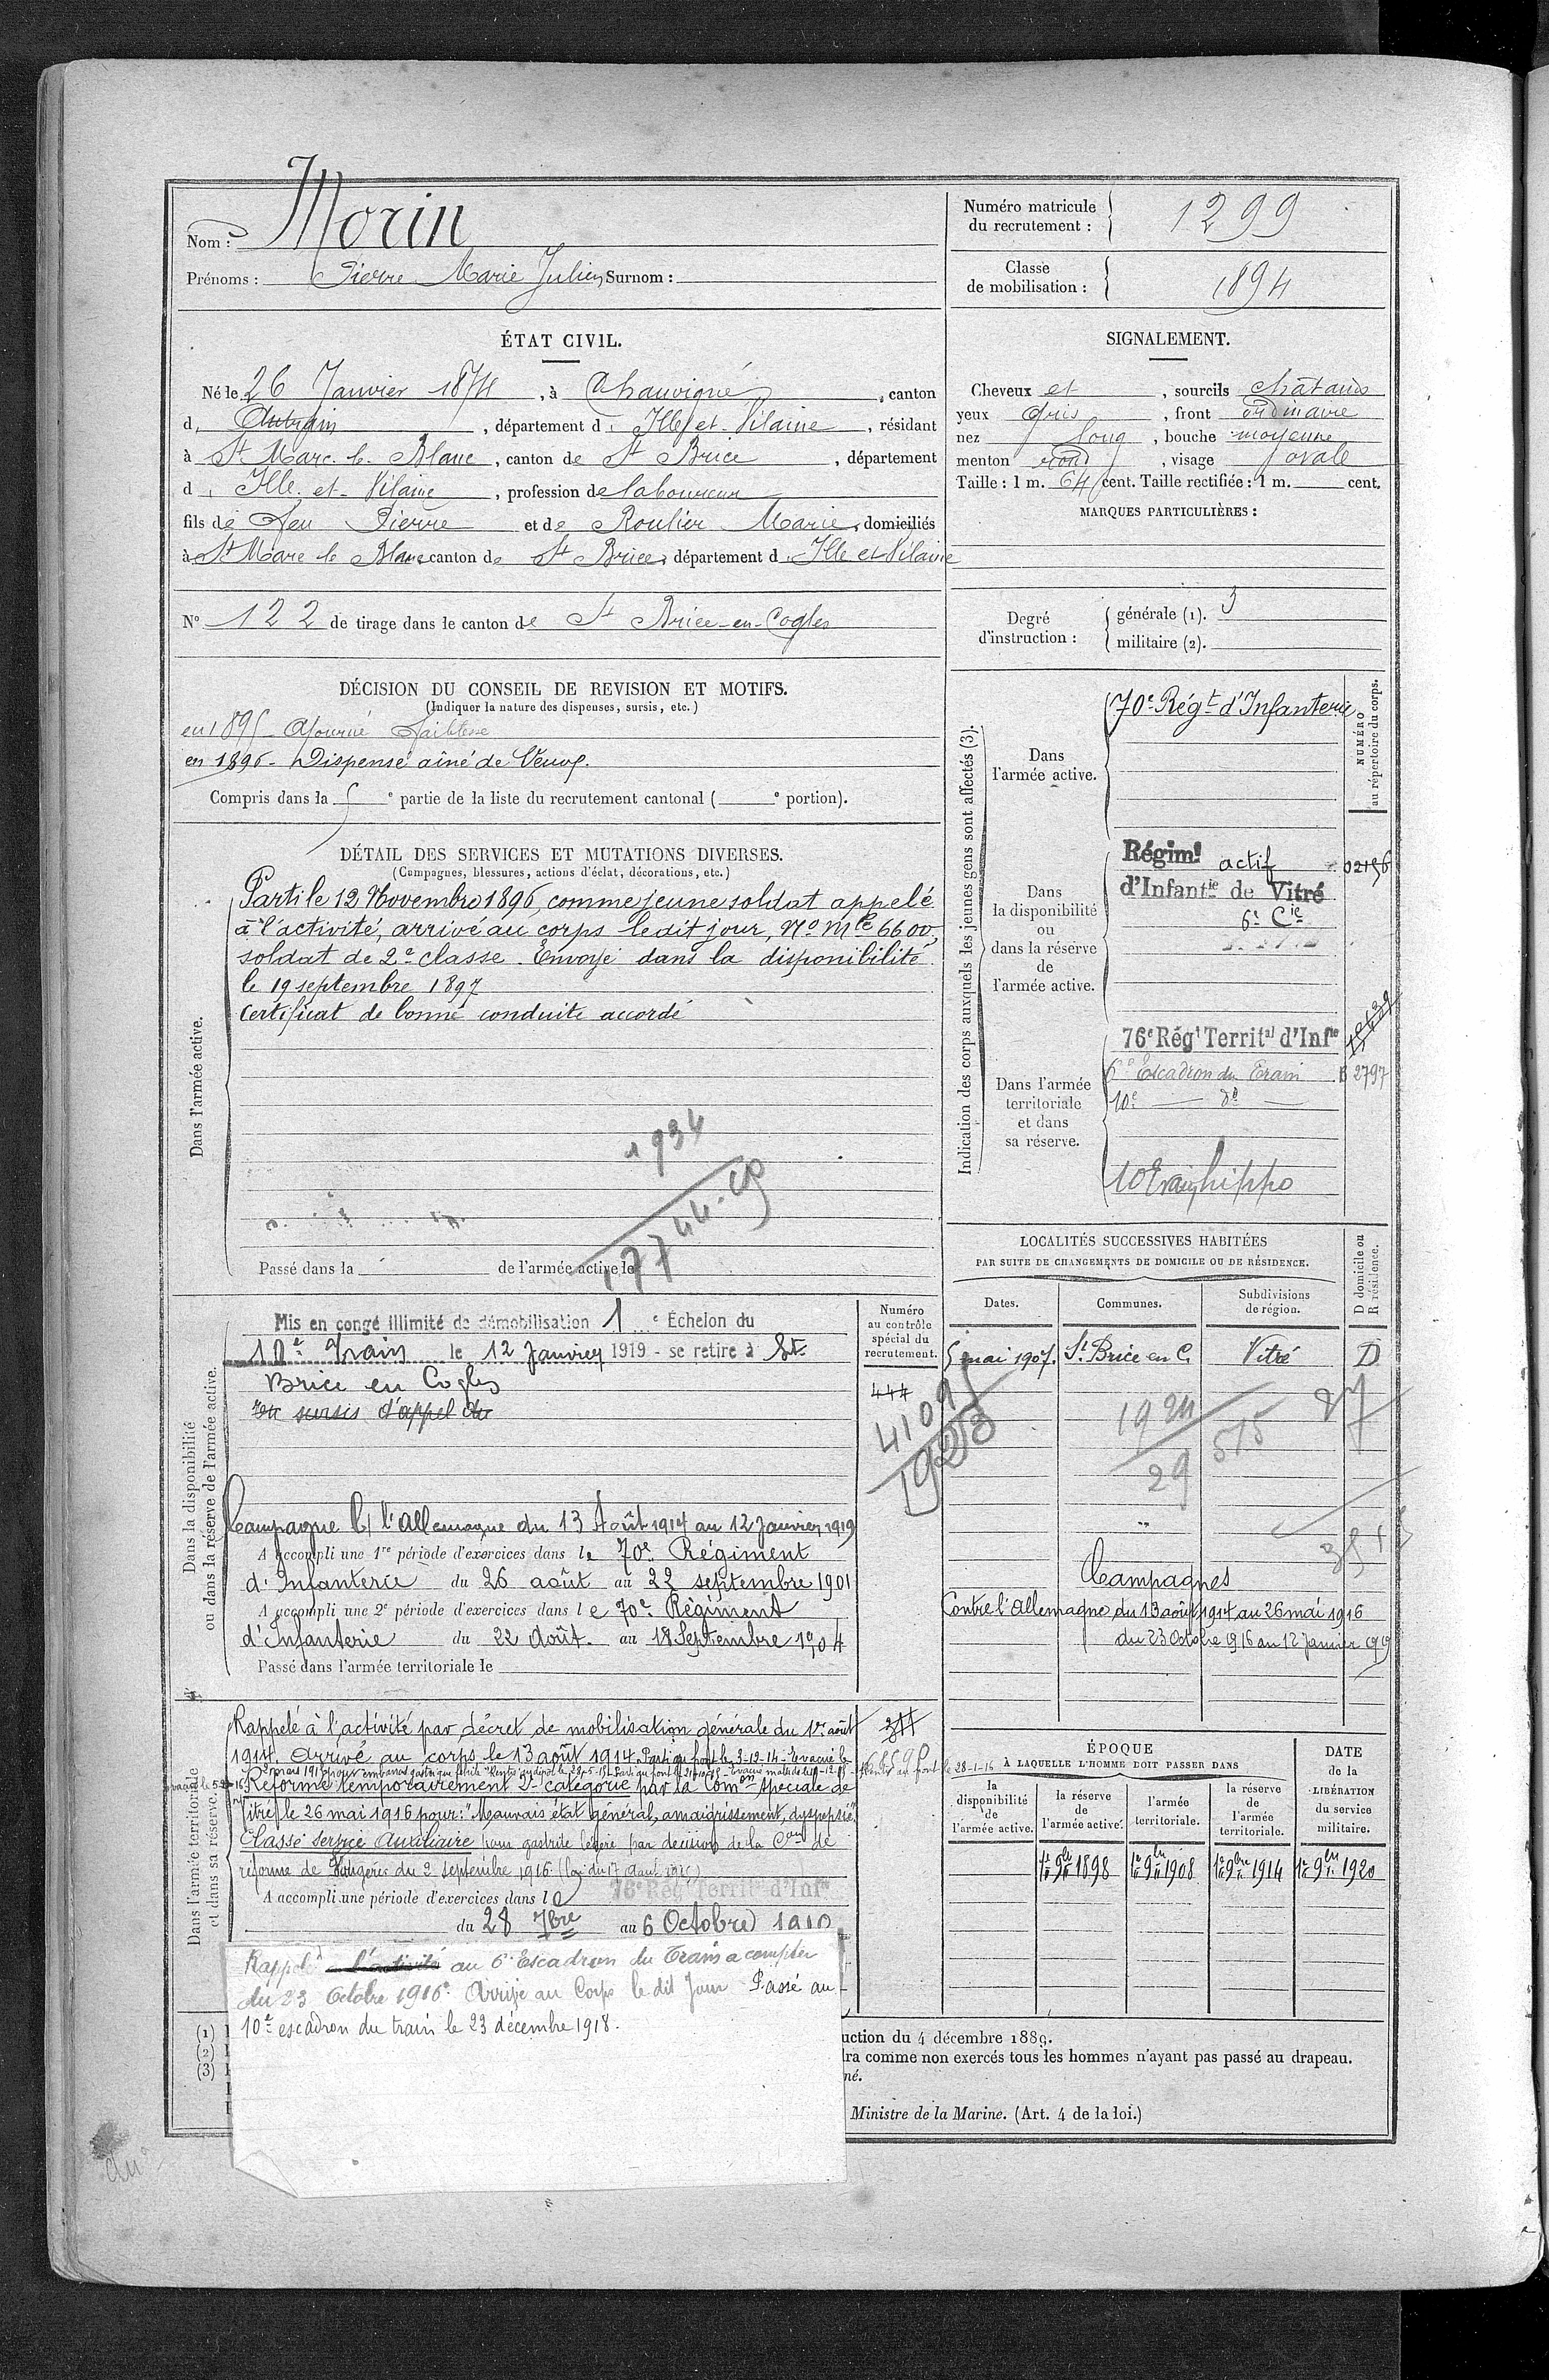 Nom : Morin
Prénoms : Pierre Marie Julien Surnom :
Numéro matricule du recrutement : 1299
Classe de mobilisation : 1894
ÉTAT CIVIL.
Né le 26 Janvier 1874, à Chauvigné, canton
d Antrain, département d Ille et Vilaine, résidant
à St Marc le Blanc, canton de St Brice, département
d Ille et Vilaine, profession de laboureur
fils de Feu Pierre et de Roulier Marie, domiciliés
à St Marc le Blanc canton de St Brice, département d Ille et Vilaine
N° 122 de tirage dans le canton de St Brice-en-Cogles
SIGNALEMENT.
Cheveux et, sourcils châtains
yeux gris, front ordinaire
nez long, bouche moyenne
menton rond, visage ovale
Taille : 1 m. 64 cent. Taille rectifiée : 1 m. cent.
MARQUES PARTICULIÈRES :
Degré d'instruction :
générale (1). 3
militaire (2).
DÉCISION DU CONSEIL DE REVISION ET MOTIFS.
(Indiquer la nature des dispenses, sursis, etc.)
en 1895 Ajourné Faiblesse
en 1896 - Dispensé aîné de Veuve.
Compris dans la e partie de la liste du recrutement cantonal ( e portion).
DÉTAIL DES SERVICES ET MUTATIONS DIVERSES.
(Campagnes, blessures, actions d'éclat, décorations, etc.)
Dans l'armée active.
Parti le 12 Novembre 1896, comme jeune soldat appelé
à l'activité, arrivé au corps ledit jour, No Mle 6600,
soldat de 2e classe. Envoyé dans la disponibilité
le 19 septembre 1897
Certificat de bonne conduite accordé
1934
17744.
Passé dans la de l'armée active le
Indication des corps auxquels les jeunes gens sont affectés (3).
NUMÉRO au répertoire du corps.
Dans l'armée active.
70e Régt d'Infanterie
Dans la disponibilité ou dans la réserve de l'armée active.
Régimt actif
d'Infantie de Vitré
6e Cie
Dans l'armée territoriale et dans sa réserve.
76e Régt Territal d'Infie
6e Escadron du Train 2797
10e do
10 Train hippo
LOCALITÉS SUCCESSIVES HABITÉES
PAR SUITE DE CHANGEMENTS DE DOMICILE OU DE RÉSIDENCE.
Dates. Communes. Subdivisions de région. D domicile ou R résidence.
5 mai 1907. St Brice en C. Vitré D
1924
29
515
Campagnes
Contre l'Allemagne du 13 août 1914 au 26 mai 1916
du 23 Octobre 1916 au 12 Janvier 1919
Dans la disponibilité ou dans la réserve de l'armée active.
Numéro au contrôle spécial du recrutement.
444
41091
1923
Mis en congé illimité de démobilisation 1 e Échelon du
10e Train le 12 Janvier 1919 - se retire à St.
Brice en Cogles
sursis d'appel du
Campagne C/ l'Allemagne du 13 Août 1914 au 12 Janvier 1919
A accompli une 1re période d'exercices dans le 70e Régiment
d'Infanterie du 26 août au 22 septembre 1901
A accompli une 2e période d'exercices dans le 70e Régiment
d'Infanterie du 22 Août. au 18 Septembre 1904
Passé dans l'armée territoriale le
Dans l'armée territoriale et dans sa réserve.
Rappelé à l'activité par décret de mobilisation générale du 1er août
1914. Arrivé au corps le 13 août 1914. Parti au front le 3-12-14 - Evacué le
2 mars 1915 pour embarras gastrique
au front le 28-1-16
Réformé temporairement 2e catégorie par la Comon spéciale de
Vitré le 26 mai 1916 pour : "Mauvais état général, amaigrissement, dyspepsie"
Classé service Auxiliaire pour gastrite légère par décision de la Con de
réforme de Fougères du 2 septembre 1916 (Loi du 17 Août 1915)
A accompli une période d'exercices dans le 76e Régt Territal d'Infie
du 28 7bre au 6 Octobre 1910
Rappelé à l'activité au 6e Escadron du Train à compter
du 23 Octobre 1916. Arrivé au Corps le dit Jour Passé au
10e escadron du train le 23 décembre 1918.
ÉPOQUE
À LAQUELLE L'HOMME DOIT PASSER DANS
la disponibilité de l'armée active. la réserve de l'armée active. l'armée territoriale. la réserve de l'armée territoriale.
DATE de la LIBÉRATION du service militaire.
1er 9bre 1898 1er 9bre 1908 1er 9bre 1914 1er 9bre 1920
(1)
(2)
(3)
uction du 4 décembre 1889.
dra comme non exercés tous les hommes n'ayant pas passé au drapeau.
né.
Ministre de la Marine. (Art. 4 de la loi.)